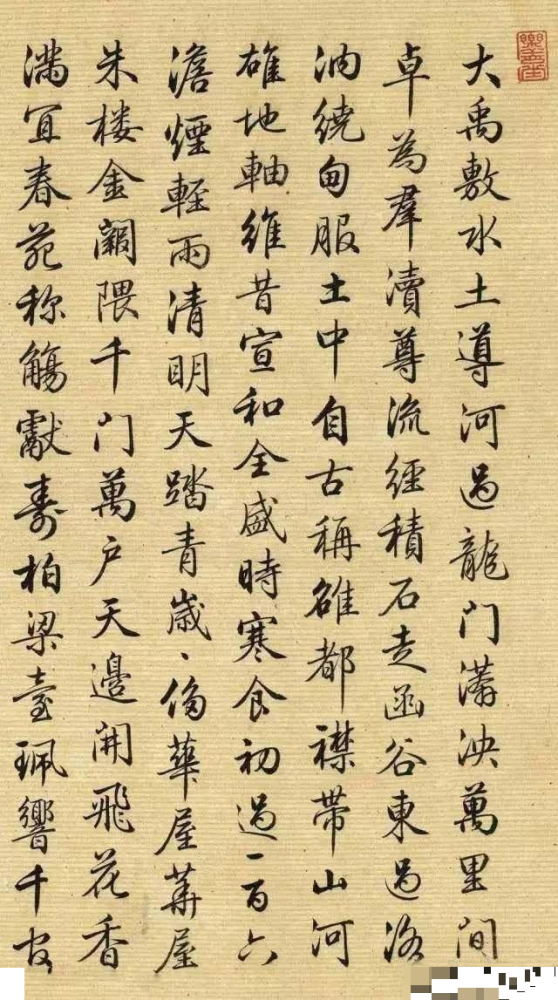 樂善堂
大禹敷水土導河過龍门漭泱萬里间
卓為羣瀆尊流經積石走函谷東過洛
汭繞甸服土中自古稱雄都襟帶山河
雄地軸維昔宣和全盛時寒食初過一百六
澹煙輕雨清明天踏青歲〻侈華屋華屋
朱楼金闕隈千门萬户天邊開飛花香
满宜春苑称觴獻壽柏梁臺珮響千官